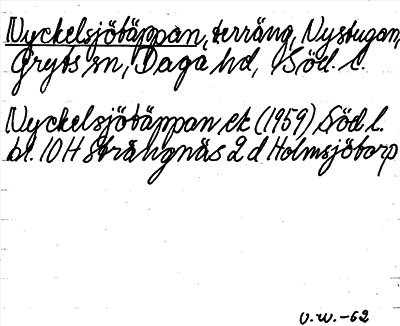 Nyckelsjötäppan, terräng, Nystugan,
Gryts sn, Daga hd, Söd. l.
Nyckelsjötäppan ek (1959) Söd l.
bl. 10 H Strängnäs 2 d Holmsjötorp
V.W.-62